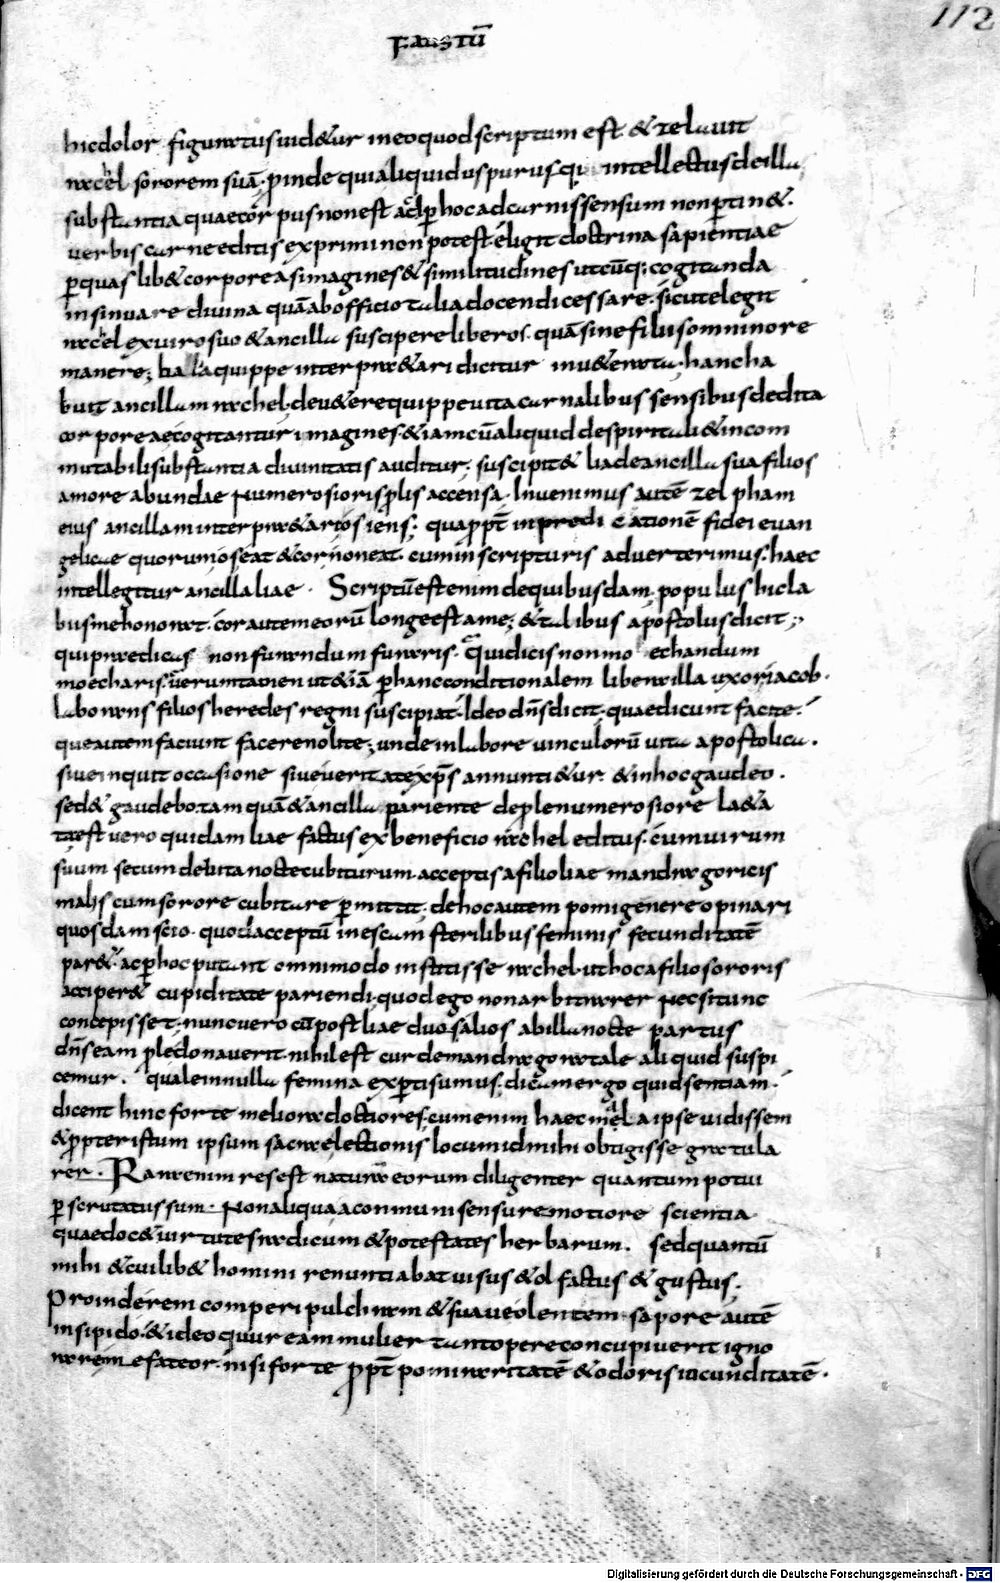 FAUSTŪ
112
hic dolor figuratus uid&ur in eo quod scriptum est & zelauit
rachel sororem suā. proinde quia liquidus purusq; intellectus de illa
substantia quae corpus non est ac per hoc ad carnis sensum non pertin&.
uerbis carne editis exprimi non potest. eligit doctrina sapientiae
per quaslib& corporeas imagines & similitudines utcūq; cogitanda
insinuare diuina quā ab officio talia docendi cessare. sicut elegit
rachel ex uiro suo & ancilla suscipere liberos. quā sine filiis omnino re
manere; bala quippe interpr&ari dicitur inu&erata. hanc ha
buit ancillam rachel. de u&ere quippe uita carnalibus sensibus dedita
corporeae cogitantur imagines. & iam cū aliquid de spiritali & incom
mutabili substantia diuinitatis auditur; suscipit & lia de ancilla sua filios
amore abundae numerosioris prolis accensa. Inuenimus autē zelpham
eius ancillam interpr&ari os iens; quapropt in predicationē fidei euan
gelicae quorum os eat & cor non eat. cum in scripturis aduerterimus. haec
intellegitur ancilla liae. Scriptū est enim de quibusdam. populus hic la
bus me honorat. cor autem eorū longe est a me; & talibus apostolus dicit;
qui praedicas non furandum furaris. Qui dicis non moechandum
moecharis. uerumtamen ut &iā per hanc conditionalem libera illa uxor iacob.
laborans filios heredes regni suscipiat. Ideo dns dicit. quae dicunt facite.
que autem faciunt facere nolite; unde in labore uinculorū uita apostolica.
siue inquit occasione siue uerit ate xps annunti&ur. & in hoc gaudeo.
sed & gaudebo. tam quā & ancilla pariente de prole numerosiore la&a
tur est uero quidam liae factus ex beneficio rachel editus. cum uirum
suum secum debita nocte cubiturum. acceptis a filio liae mandragoricis
malis cum sorore cubitare permittit. de hoc autem pomi genere opinari
quosdam scio. quod acceptū in escam sterilibus feminis fecunditatē
par&. ac per hoc putant omnimodo institisse rachel. ut hoc a filio sororis
acciper& cupiditate pariendi. quod ego non arbitrarer nec si tunc
concepisset. nunc uero cū post liae duos alios ab illa nocte partus
dns eam prole donauerit. nihil est cur de mandragora tale aliquid suspi
cemur. quale in nulla femina expti sumus. dicam ergo quid sentiam.
dicent hinc forte meliora doctiores. cum enim haec mala ipse uidissem
& propter istum ipsum sacrae lectionis locum id mihi obtigisse gratula
rer. Rara enim res est naturam eorum diligenter quantum potui
perscrutatus sum. Non aliqua a communi sensu remotiore scientia
quae doc& uirtutes radicum & potestates herbarum. sed quantū
mihi & cuilib& homini renuntiabat uisus & olfactus & gustus.
Proinde rem comperi pulchram & suaueolentem. sapore autē
insipido. & ideo quur eam mulier tantopere concupiuerit igno
rare me fateor. nisi forte propt pomi raritatē & odoris iucunditatē.
Digitalisierung gefördert durch die Deutsche Forschungsgemeinschaft - DFG